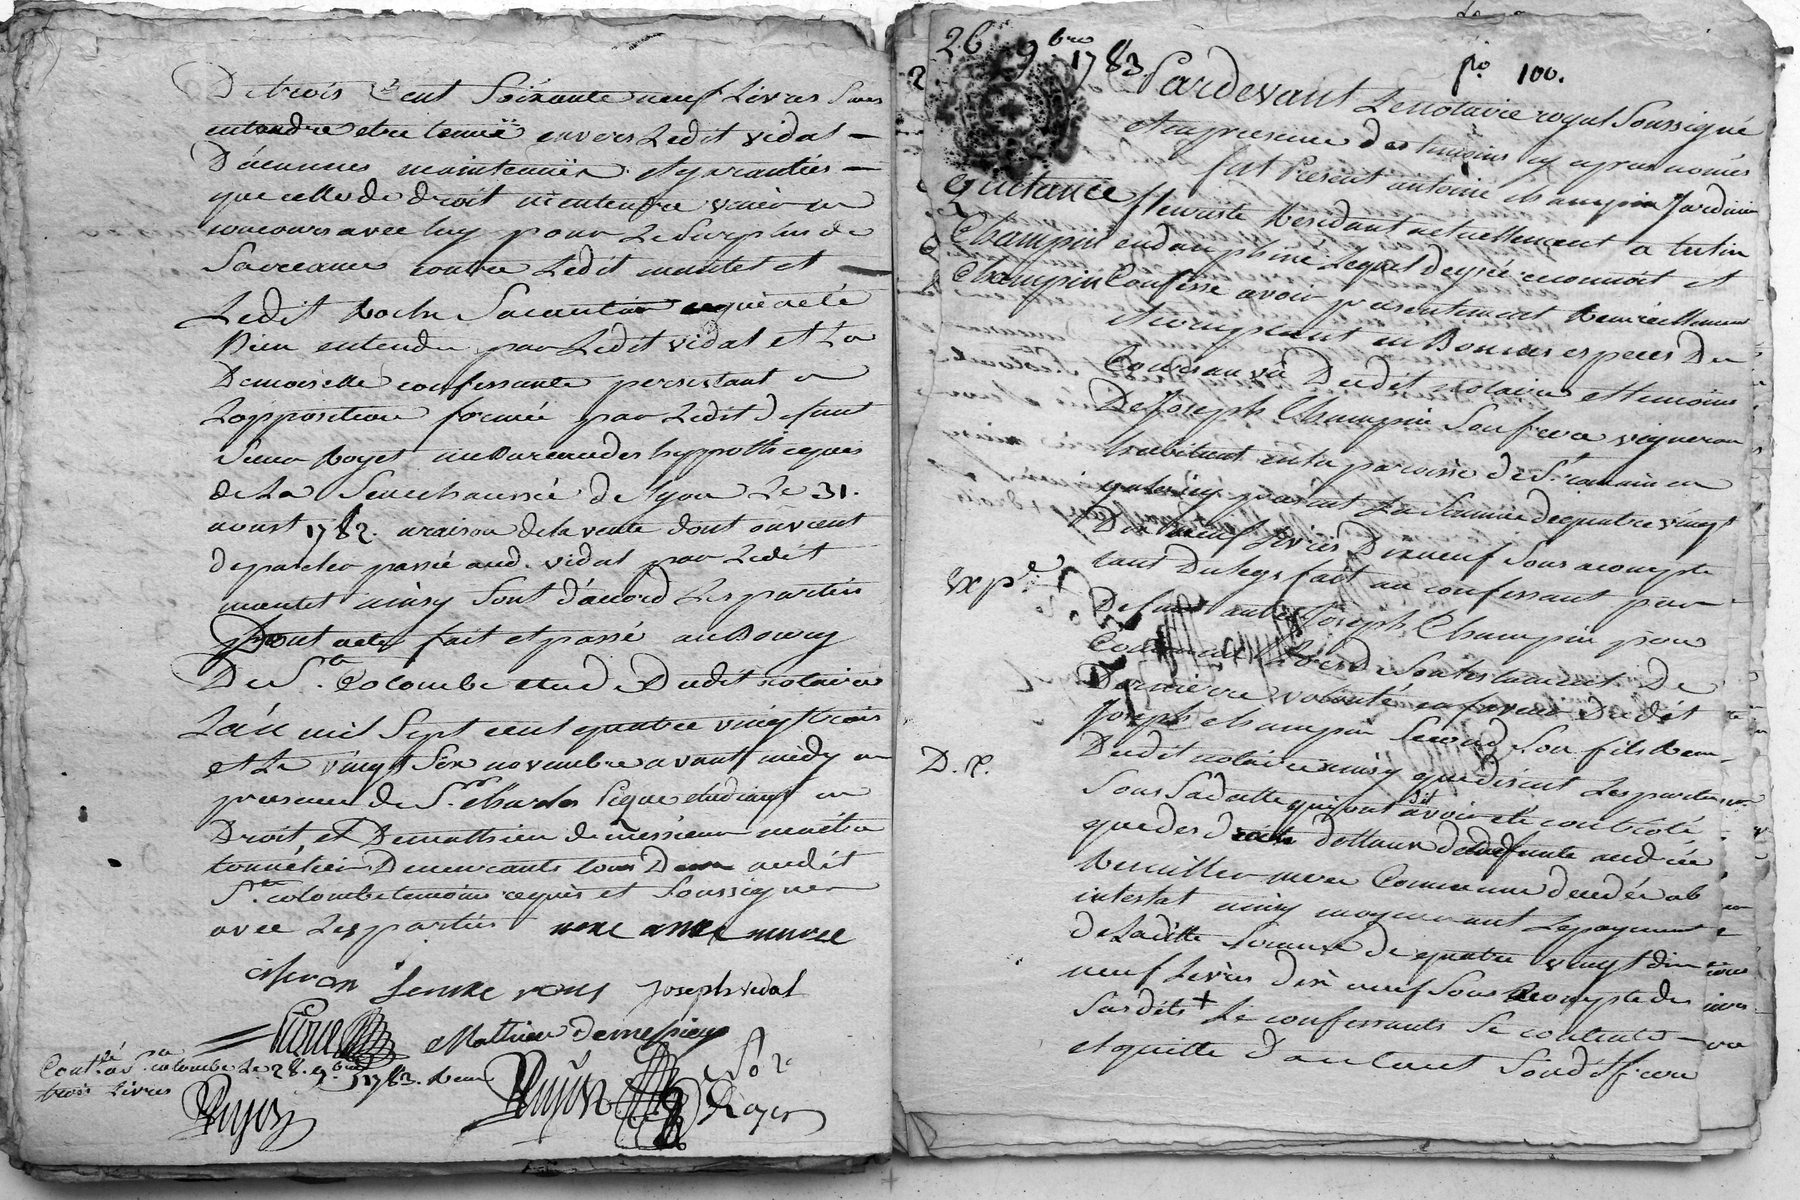 De trois Cent Soixante neuf Livres Sans
entendre etre tenuë envers Ledit vidal -
D'aucunes maintenüe et garanties -
que celle de droit n'entendre venir en
concours avec luy pour Le Surplus de
Sa creance contre Ledit mantet et -
Ledit Roche Sa caution
Bien entendu par Ledit vidal et La
Demoiselle confessante persistant en
L'opposition formée par Ledit defunt
Sieur Royet au Bureau des hyppotheques
de La Senechaussée de Lyon Le 31.
aoust 1782. a raison de la vente dont on vient
de parler passé aud. vidal par Ledit
mantet ainsy Sont d'accord Les parties
Dont acte fait et passé au Bourg
De Ste. Colombe etude Dudit notaire
L'an mil Sept cent quatre vingt trois
et Le vingt Six novembre avant midy en
presence de Sr. Charles Pique etudiant en
Droit, et De mathieu de messieux maitre
tonnelier Demeurants tous Deux audit
Ste. colombe temoins requis et Soussignés
avec Les parties
Joseph vidal
Mathieu Demessieux
Contlé. a Ste. colombe Le 28. 9bre 1783. Reçu
trois Livres
Royer
26 9bre 1783.
fo. 100.
Pardevant Le notaire royal Soussigné
et en presence des temoins cy apres només
fut Present antoine champin Jardinier
quittance
fleuriste Residant actuellement a tulin
Champin
en dauphiné Lequel de gré reconnoit et
Champin
Confesse avoir presentement Reçu réellement
et comptant en Bonnes especes De
Cours au vû Dudit notaire et temoins
De Joseph Champin Son frere vigneron
habitant en la paroisse de St. romain en
galer icy present La Somme de quatre vingt
Dix neuf Livres Dix neuf Sous acompte
tant Du legs fait au confessant par
Expé.
Defunt autre Joseph Champin pere
Commun Lors de Son testament De
Derniere volonté en faveur Dudit
Joseph champin Second Son fils Reçu
D. R.
Dudit notaire ainsy que disent Les parties
Sous Sa datte qu'ont dit avoir eté controlé
que des droits dottaux de defunte andrée
mere Commune decedée ab
intestat ainsy moyennant Le payement
de Ladite Somme de quatre vingt dix
neuf Livres dix neuf Sous acompte des
Susdits + Le confessant Se contente -
et quitte D'autant Sondit frere